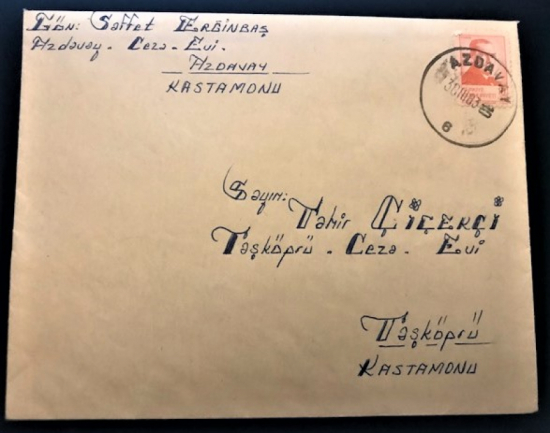 Gön: Saffet ERGİNBAŞ
Azdavay - Ceza - Evi.
AZDAVAY
KASTAMONU
AZDAVAY
Sayın:
Tahir ÇİÇEKÇİ
Taşköprü - Ceza - Evi
Taşköprü
KASTAMONU